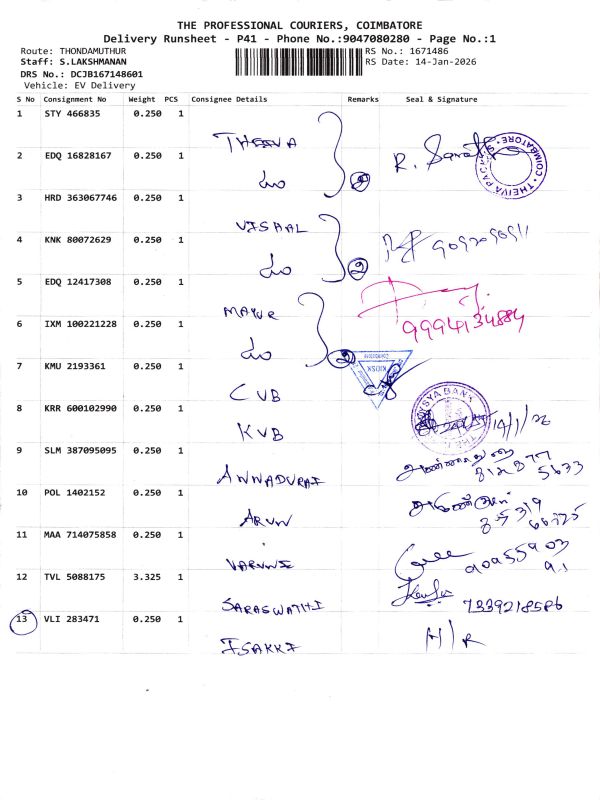 THE PROFESSIONAL COURIERS, COIMBATORE
Delivery Runsheet - P41 - Phone No.:9047080280 - Page No.:1
Route: THONDAMUTHUR RS No.: 1671486
Staff: S.LAKSHMANAN RS Date: 14-Jan-2026
DRS No.: DCJB167148601
Vehicle: EV Delivery
S No Consignment No Weight PCS Consignee Details Remarks Seal & Signature
1 STY 466835 0.250 1
THEEVA
2 EDQ 16828167 0.250 1 R.
3 HRD 363067746 0.250 1
VISAAL
4 KNK 80072629 0.250 1
2
5 EDQ 12417308 0.250 1
MAYUR
6 IXM 100221228 0.250 1 9994134884
7 KMU 2193361 0.250 1 KIOSK
CVB
8 KRR 600102990 0.250 1 14/1/26
KVB
9 SLM 387095095 0.250 1
ANNADURAI
10 POL 1402152 0.250 1
ARUN
11 MAA 714075858 0.250 1
12 TVL 5088175 3.325 1
SARASWATHI 7339218586
13 VLI 283471 0.250 1
ISAKKI